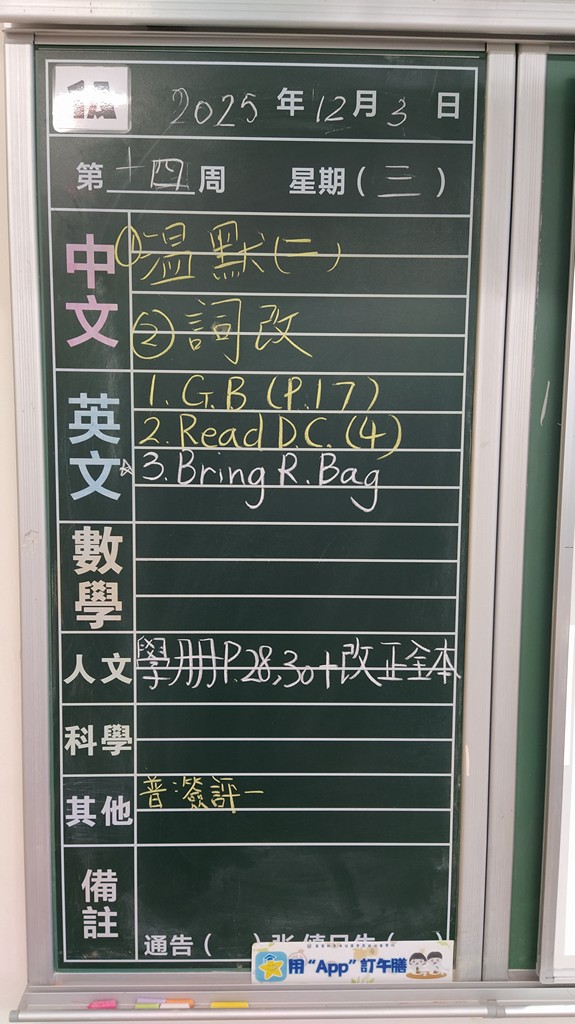 2025 年 12 月 3 日
第 十四 周 星期 ( 三 )
中文
① 溫默(二)
② 詞改
英文
1. G.B (P.17)
2. Read D.C. (4)
☆ 3. Bring R. Bag
數學
人文
學册P.28,30+改正全本
科學
其他
普:簽評一
備註
通告 ( ) 張 值日生 ( )
用“App”訂午膳